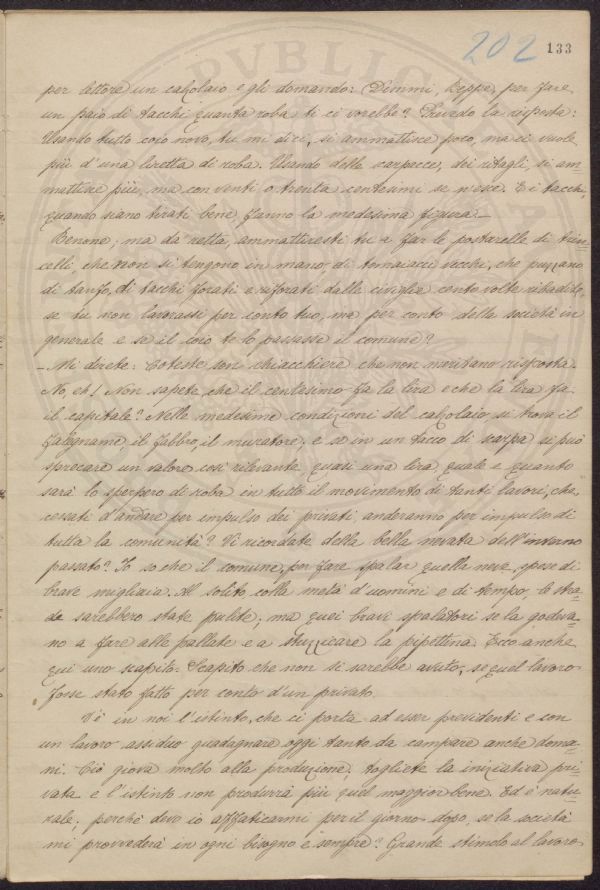 202 133
PVBLIC
per lettore un calzolaio e gli domando: Dimmi, Beppe, per fare
un paio di tacchi quanta roba ti ci vorebbe? Prevedo la risposta:
Usando tutto cojo novo, tu mi dici, si ammattisce poco, ma ci vuole
più d'una liretta di roba. Usando delle scarpacce, dei ritagli, si am-
mattisce più, ma con venti o trenta centesimi se n'esce. E i tacchi,
quando siano tirati bene, fanno la medesima figura_
Benone; ma da' retta, ammattiresti tu a far le postarelle di brin-
celli, che non si tengono in mano, di tomaiacci vecchi, che puzzano
di tanfo, di tacchi forati e riforati dalle civiglie cento volte ribadite,
se tu non lavorassi per conto tuo, ma per conto della società in
generale e se il coio te lo passasse il comune?
_ Mi direte: Coteste son chiacchiere che non meritano risposta.
No, eh! Non sapete che il centesimo fa la lira e che la lira fa
il capitale? Nelle medesime condizioni del calzolaio si trova il
falegname, il fabbro, il muratore; e se in un tacco di scarpa si può
sprecare un valore così rilevante, quasi una lira, quale e quanto
sarà lo sperpero di roba in tutto il movimento di tanti lavori, che,
cessati d'andare per impulso dei privati, anderanno per impulso di
tutta la comunità? Vi ricordate della bella nevata dell'inverno
passato? Io so che il comune, per fare spalar quella neve, spese di
brave migliaia. Al solito colla metà d'uomini e di tempo, le stra-
de sarebbero state pulite; ma quei bravi spalatori se la godeva-
no a fare alle pallate e a stuzzicare la pipettina. Ecco anche
qui uno scapito. Scapito che non si sarebbe avuto, se quel lavoro
fosse stato fatto per conto d'un privato.
V'è in noi l'istinto, che ci porta ad esser previdenti e con
un lavoro assiduo guadagnare oggi tanto da campare anche doma-
ni. Ciò giova molto alla produzione. Togliete la iniziativa pri-
vata e l'istinto non produrrà più quel maggior bene. Ed è natu-
rale; perchè devo io affaticarmi per il giorno dopo, se la società
mi provvederà in ogni bisogno e sempre? Grande stimolo al lavoro